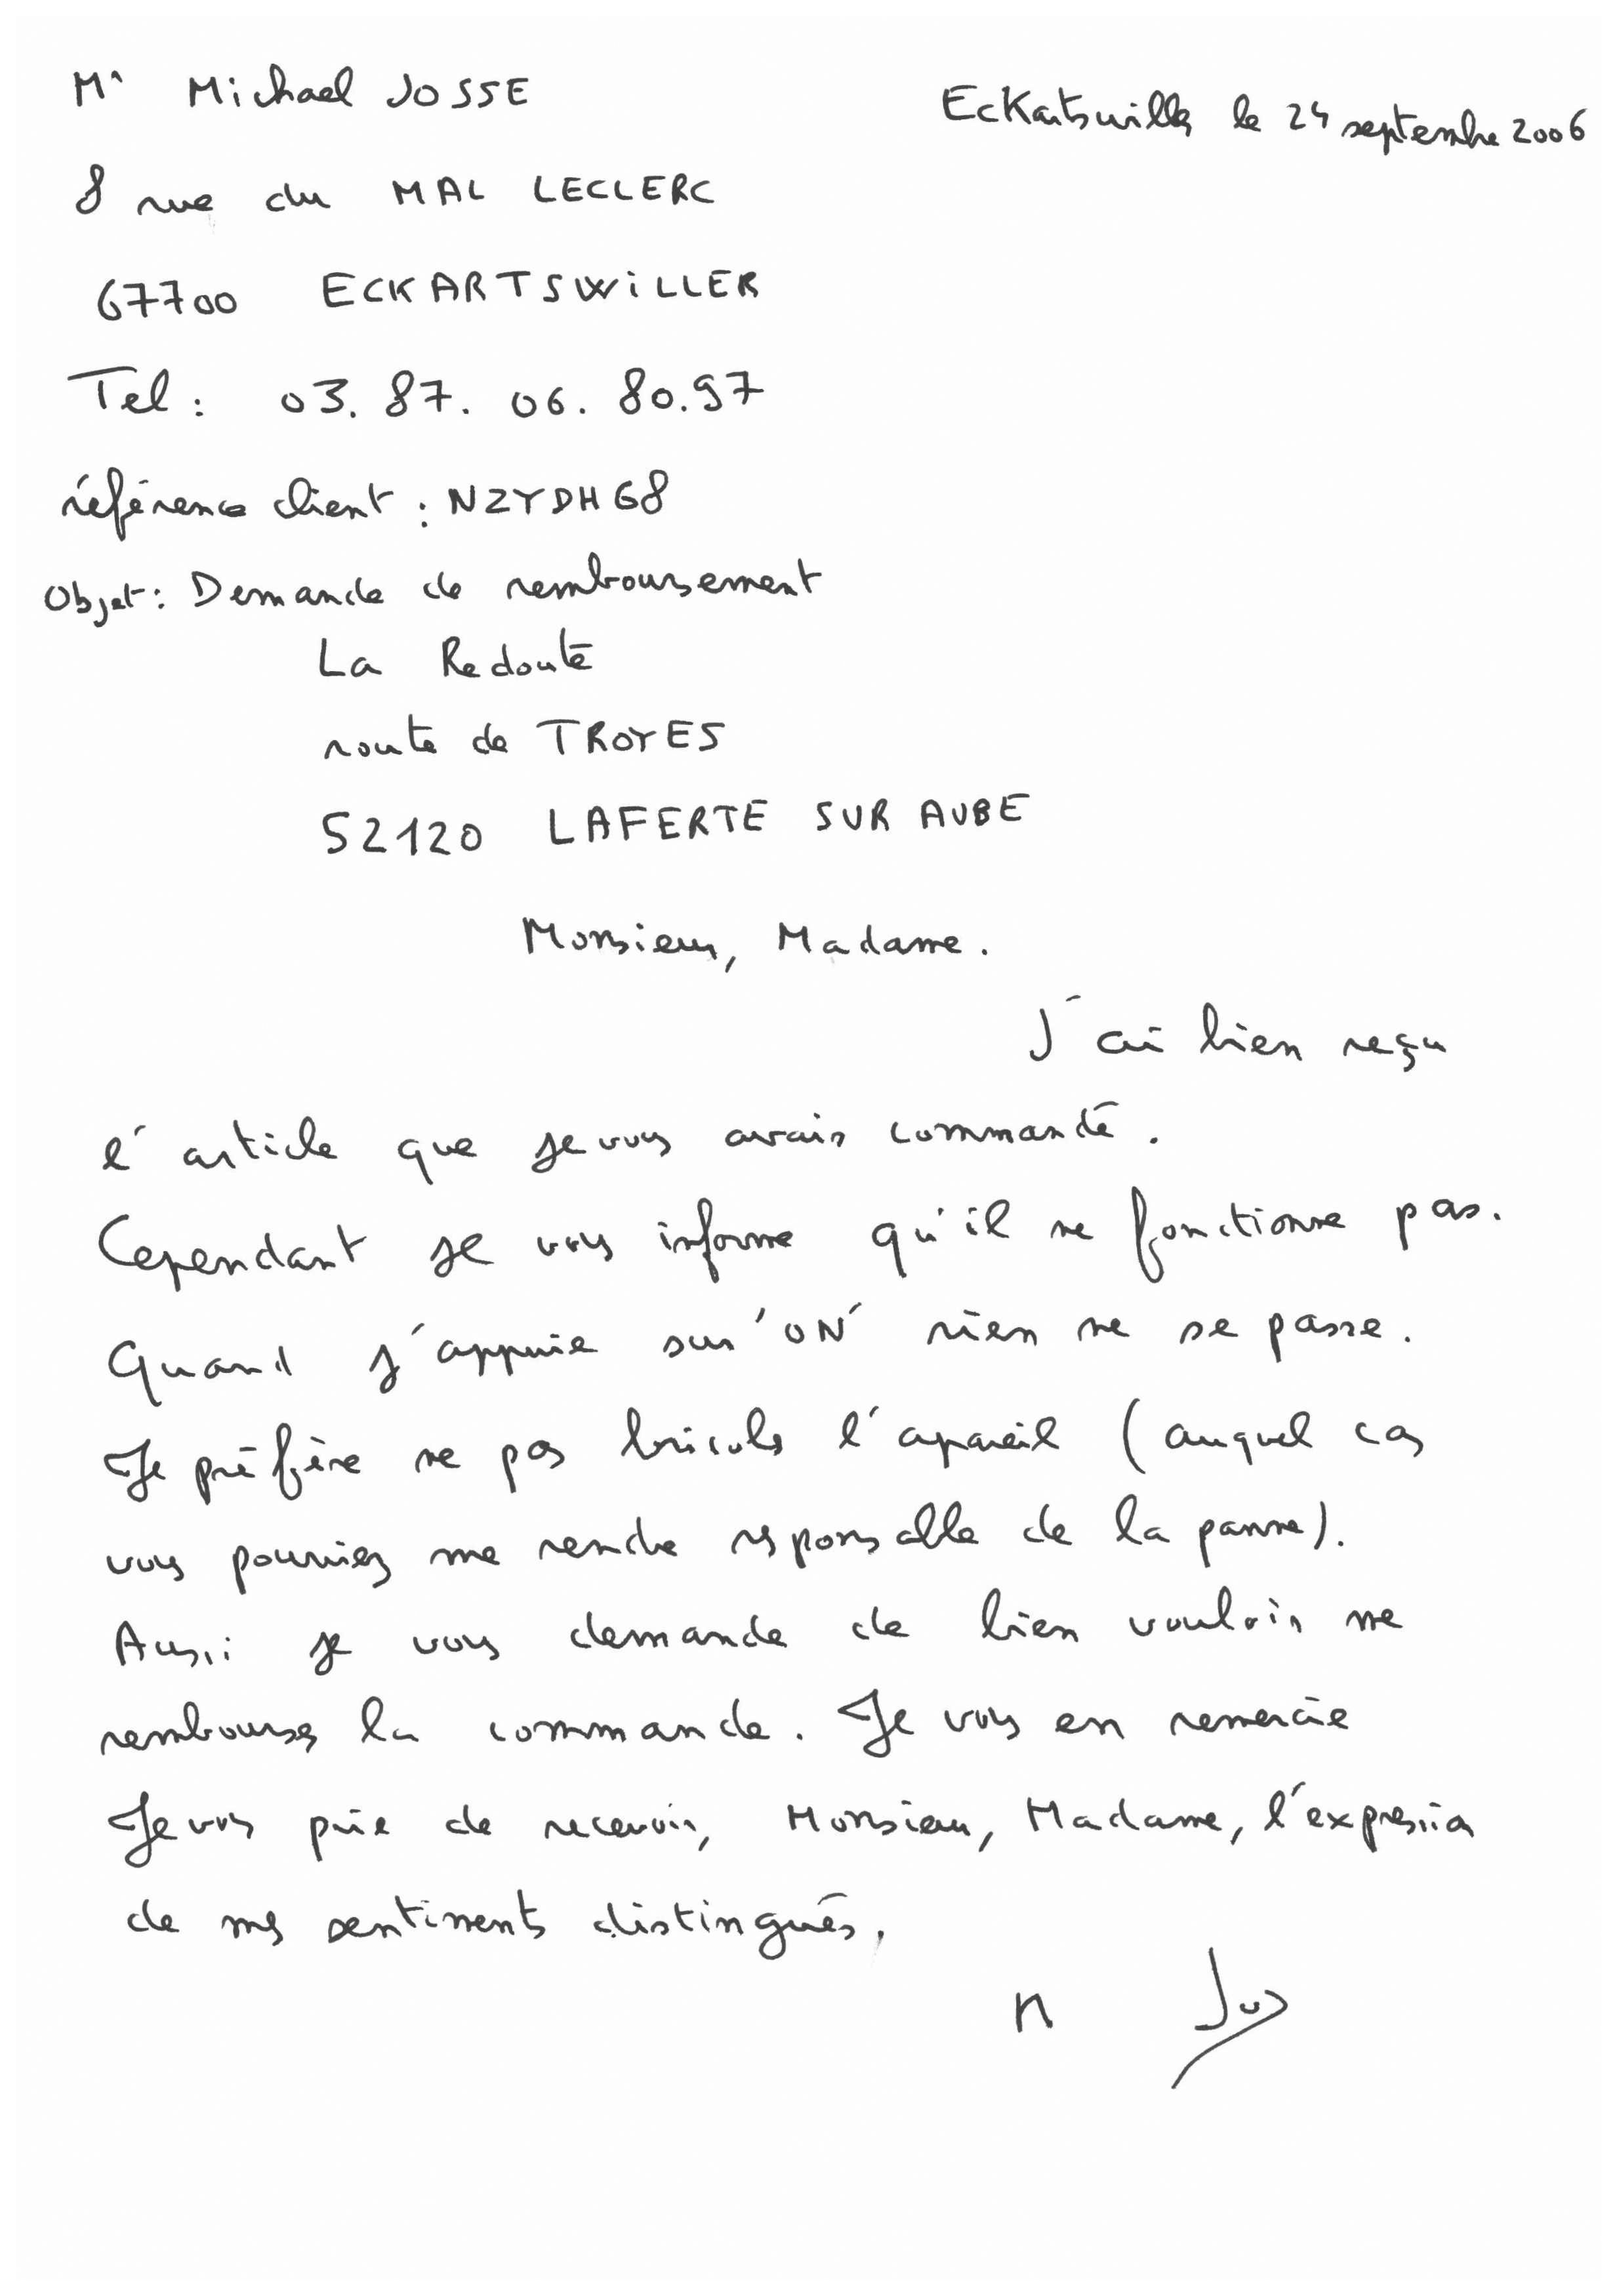 Mr Michael JOSSE
Eckartswiller le 24 septembre 2006
8 rue du MAL LECLERC
67700 ECKARTSWILLER
Tel : 03. 87. 06. 80.97
référence client : NZYDH68
Objet : Demande de remboursement
La Redoute
route de TROYES
52120 LAFERTE SUR AUBE
Monsieur, Madame.
J'ai bien reçu
l'article que je vous avais commandé.
Cependant je vous informe qu'il ne fonctionne pas.
Quand j'appuie sur 'ON' rien ne se passe.
Je préfère ne pas bricoler l'apareil (auquel cas
vous pourriez me rendre responsable de la panne).
Aussi je vous demande de bien vouloir me
rembourser la commande. Je vous en remercie
Je vous prie de recevoir, Monsieur, Madame, l'expression
de mes sentiments distingués.